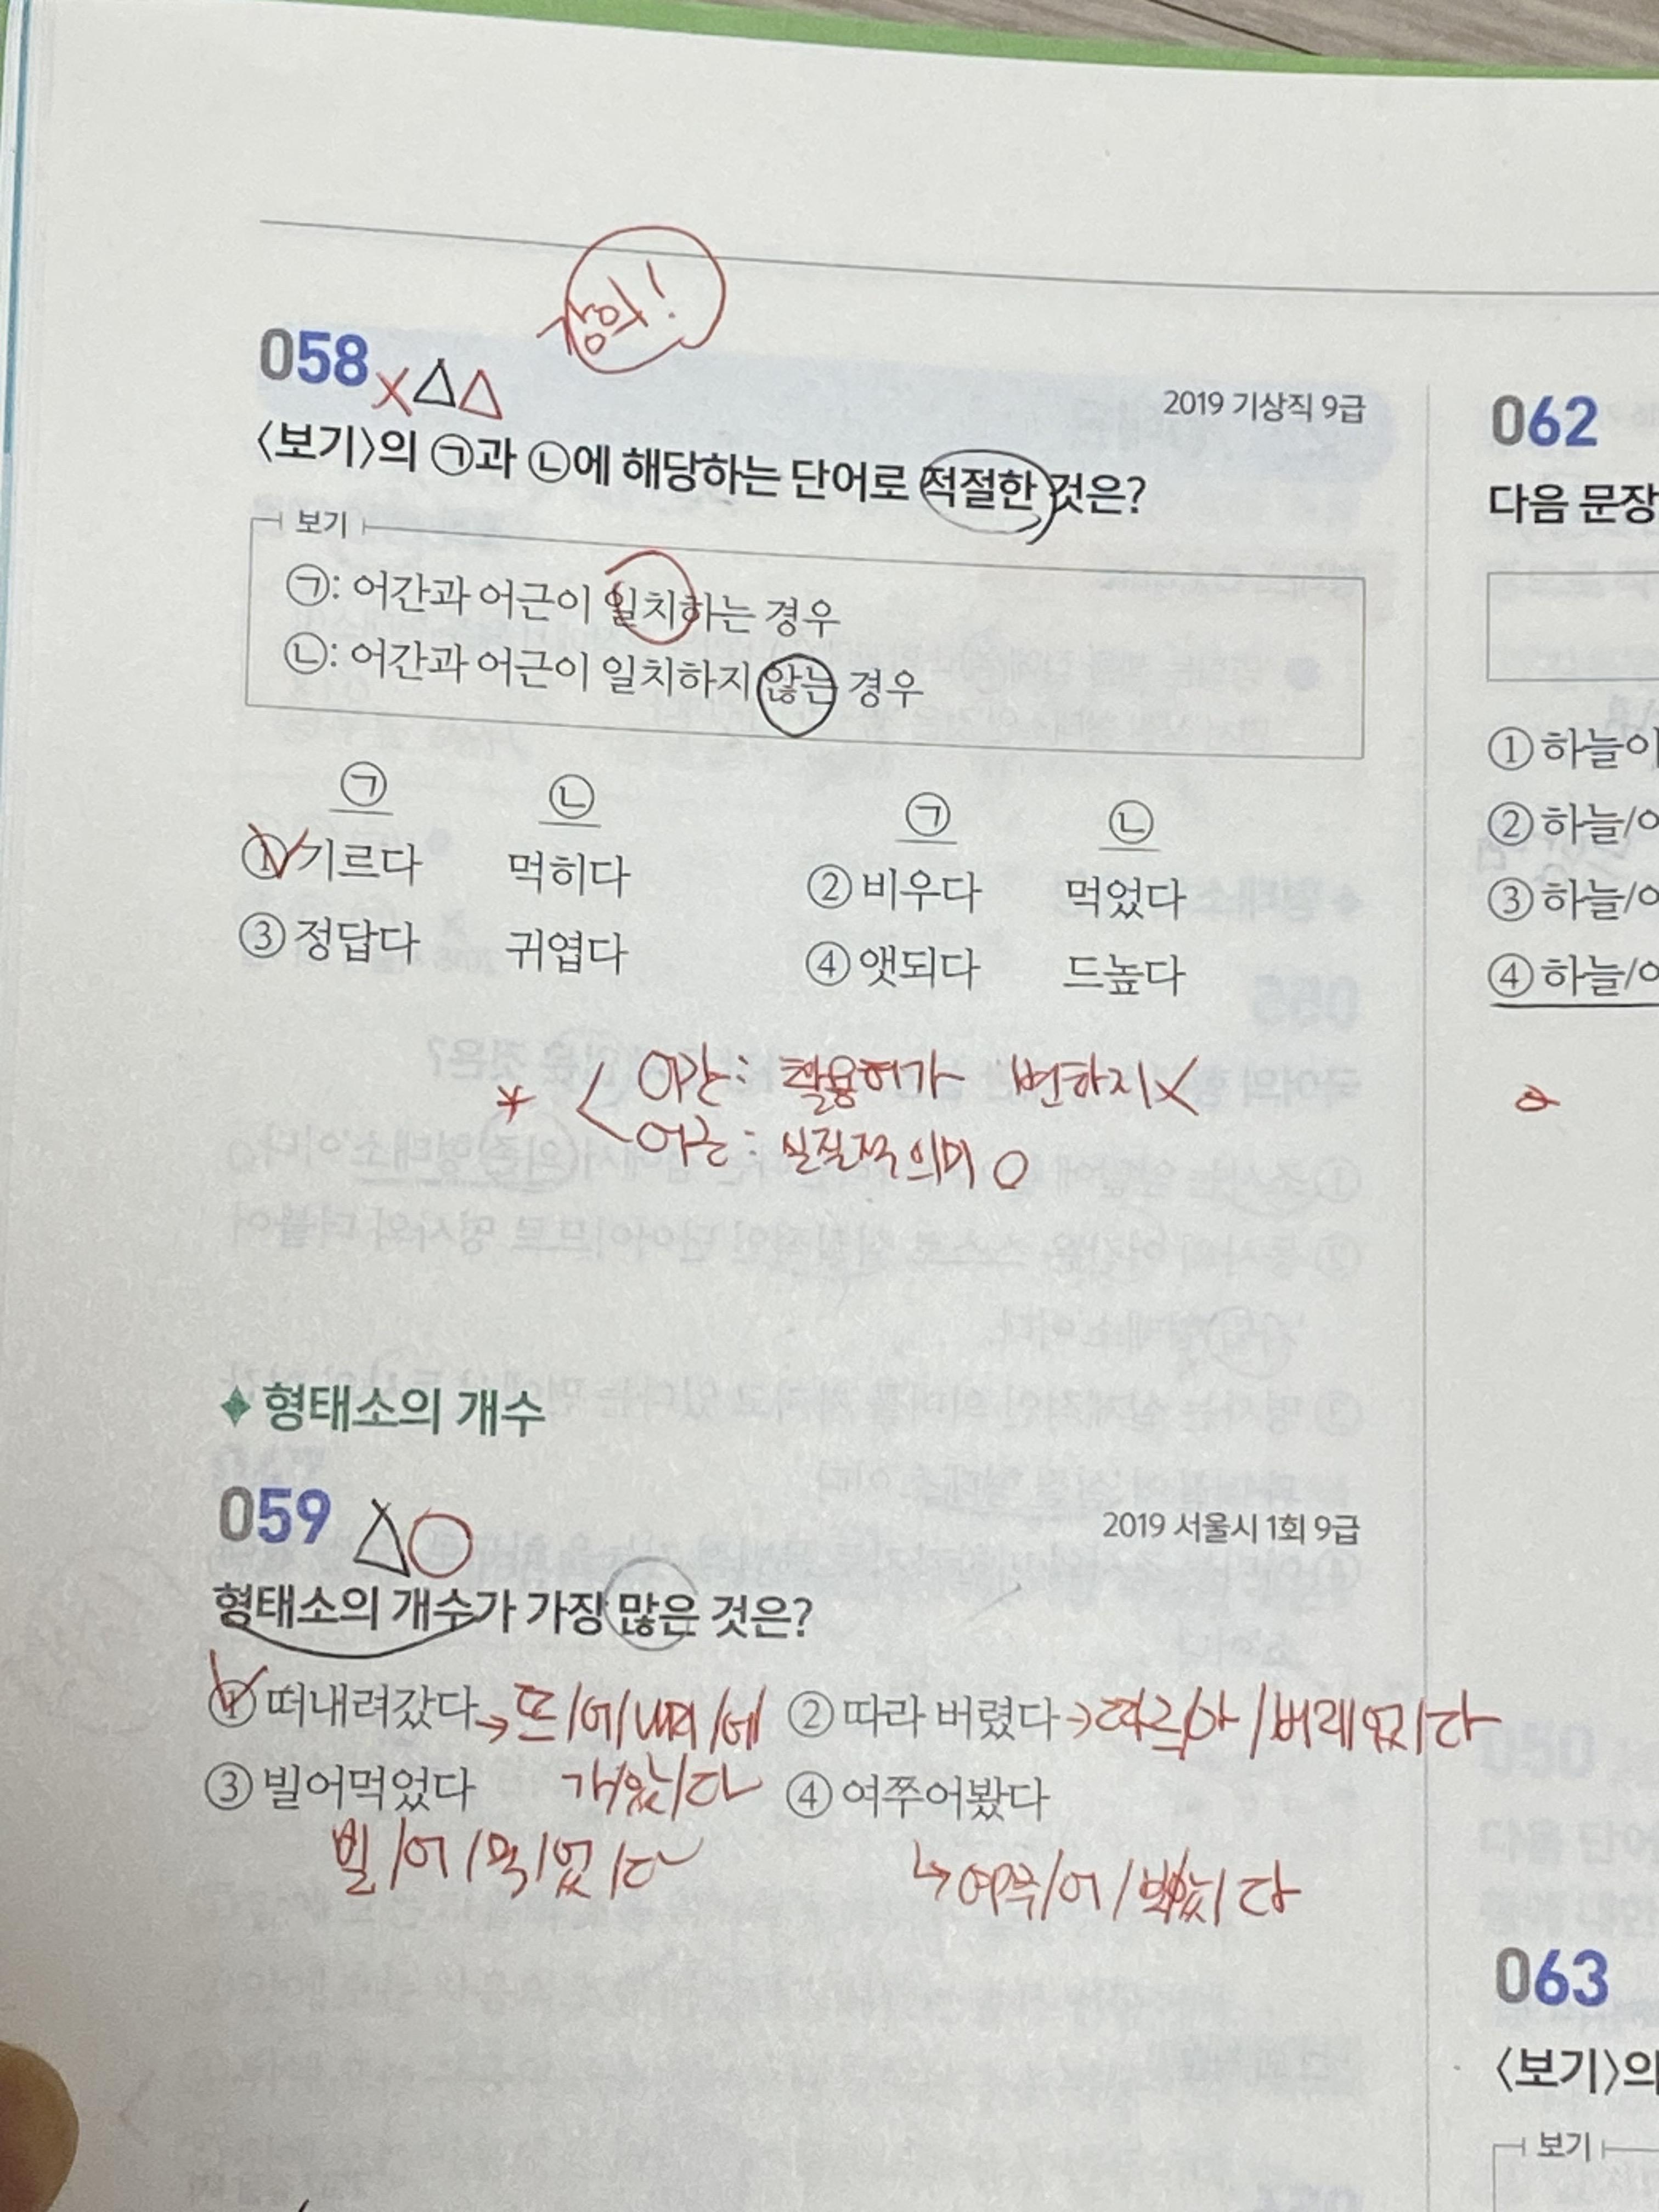 상의!
058 X△△
2019 기상직 9급
〈보기〉의 ㉠과 ㉡에 해당하는 단어로 적절한 것은?
보기
㉠: 어간과 어근이 일치하는 경우
㉡: 어간과 어근이 일치하지 않는 경우
㉠ ㉡ ㉠ ㉡
① 기르다 먹히다 ② 비우다 먹었다
③ 정답다 귀엽다 ④ 앳되다 드높다
* 어간: 활용허가 변하지X
어근: 실질적 의미 O
◆ 형태소의 개수
059 △○
2019 서울시 1회 9급
형태소의 개수가 가장 많은 것은?
① 떠내려갔다 → 뜨/어/내리/어 ② 따라 버렸다 → 따르/아/버리/었/다
③ 빌어먹었다 가/았/다 ④ 여쭈어봤다
빌/어/먹/었/다 ↳여쭈/어/보/았/다
062
다음 문장
① 하늘이
② 하늘/이
③ 하늘/이
④ 하늘/이
063
〈보기〉의
보기